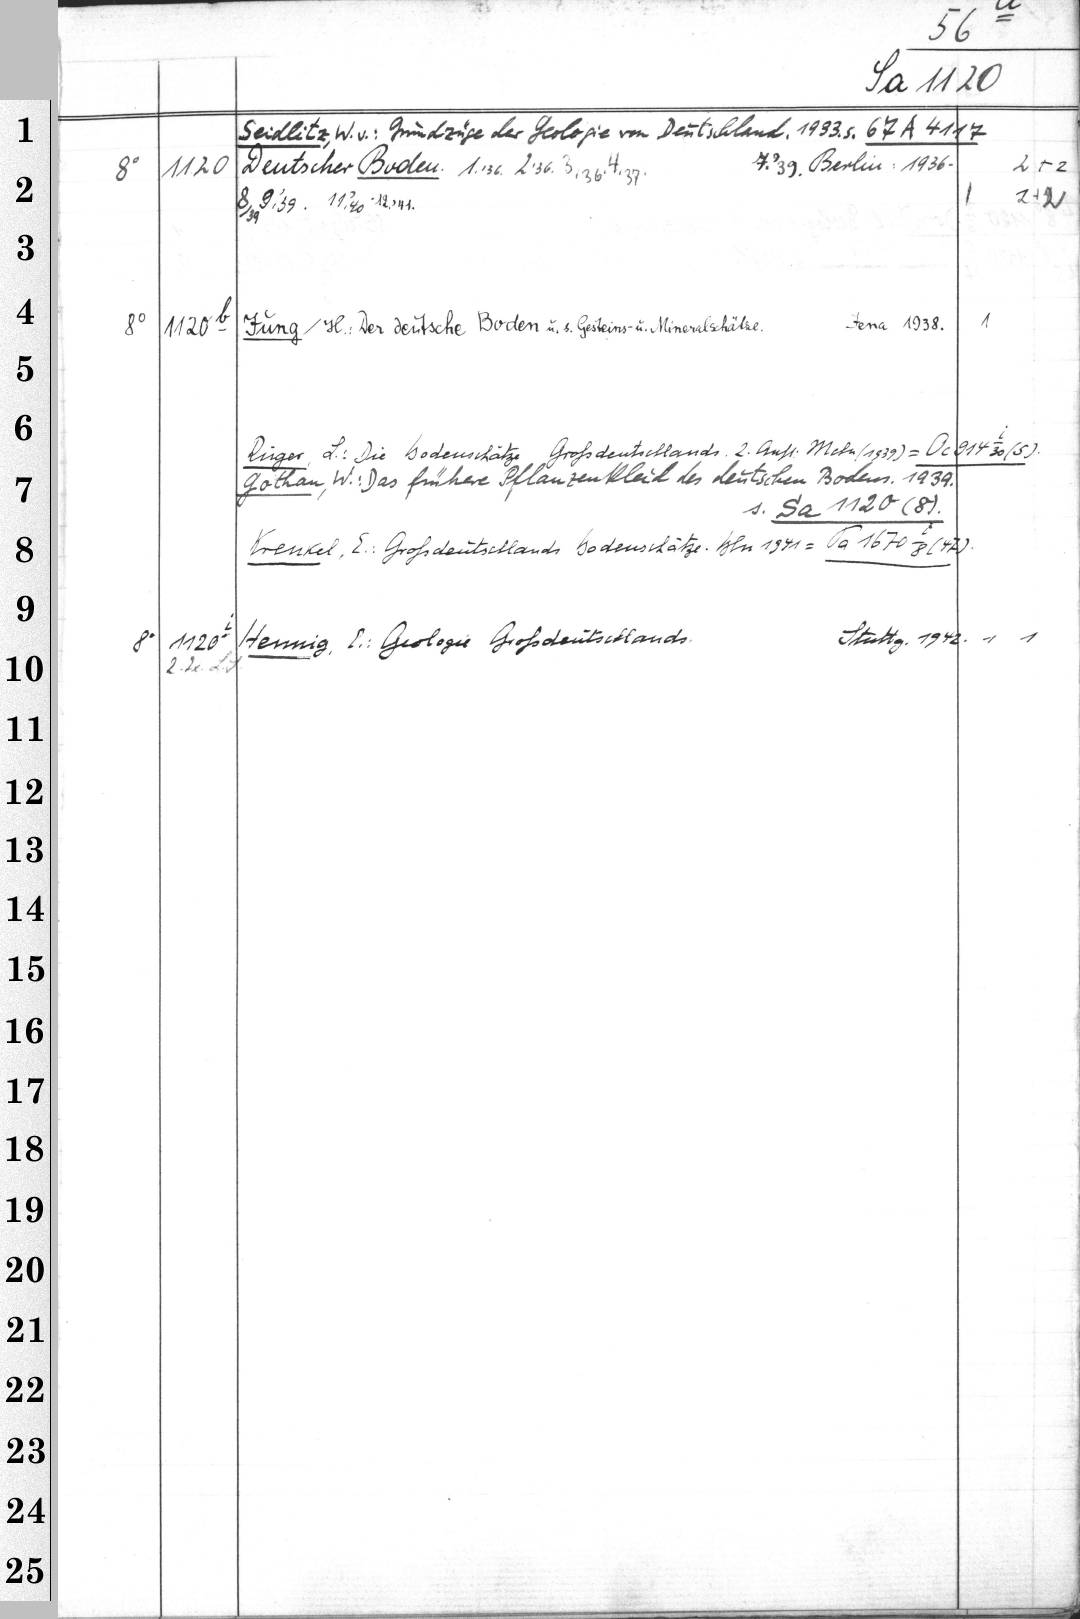 56 a
Sa 1120
1 Seidlitz, W. v.: Grundzüge der Geologie von Deutschland. 1933. s. 67 A 4117
8° 1120 Deutscher Boden. 1.'36. 2'36. 3.'36. 4.'37. 7.'39. Berlin: 1936- 2 + 2
2 8,39 9.'39. 11'40 -12.'41. 1 2+2
3
4 8° 1120 b Jung / H.: Der deutsche Boden u. s. Gesteins- u. Mineralschätze. Jena 1938. 1
5
6
Rüger, L.: Die Bodenschätze Großdeutschlands. 2. Aufl. Mchn (1939) = Oc 914 i/30 (5).
7 Gothan, W.: Das frühere Pflanzenkleid des deutschen Bodens. 1939.
s. Sa 1120 (8).
8 Krenkel, E.: Großdeutschlands Bodenschätze. Bln 1941 = Pa 1670 i/8 (47).
9
8° 1120 i Hennig, E.: Geologie Großdeutschlands. Stuttg. 1942. 1 1
10
11
12
13
14
15
16
17
18
19
20
21
22
23
24
25